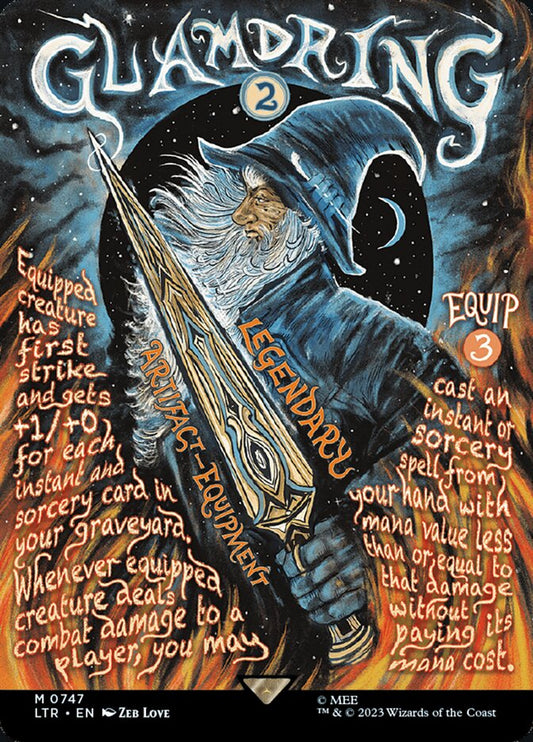 GLAMDRING
2
LEGENDARY
ARTIFACT—EQUIPMENT
Equipped
creature
has
first
strike
and gets
+1/+0
for each
instant and
sorcery card in
your graveyard.
Whenever equipped
creature deals
combat damage to a
player, you may
cast an
instant or
sorcery
spell from
your hand with
mana value less
than or equal to
that damage
without
paying its
mana cost.
EQUIP
3
M 0747
LTR • EN Zeb Love
© MEE
™ & © 2023 Wizards of the Coast